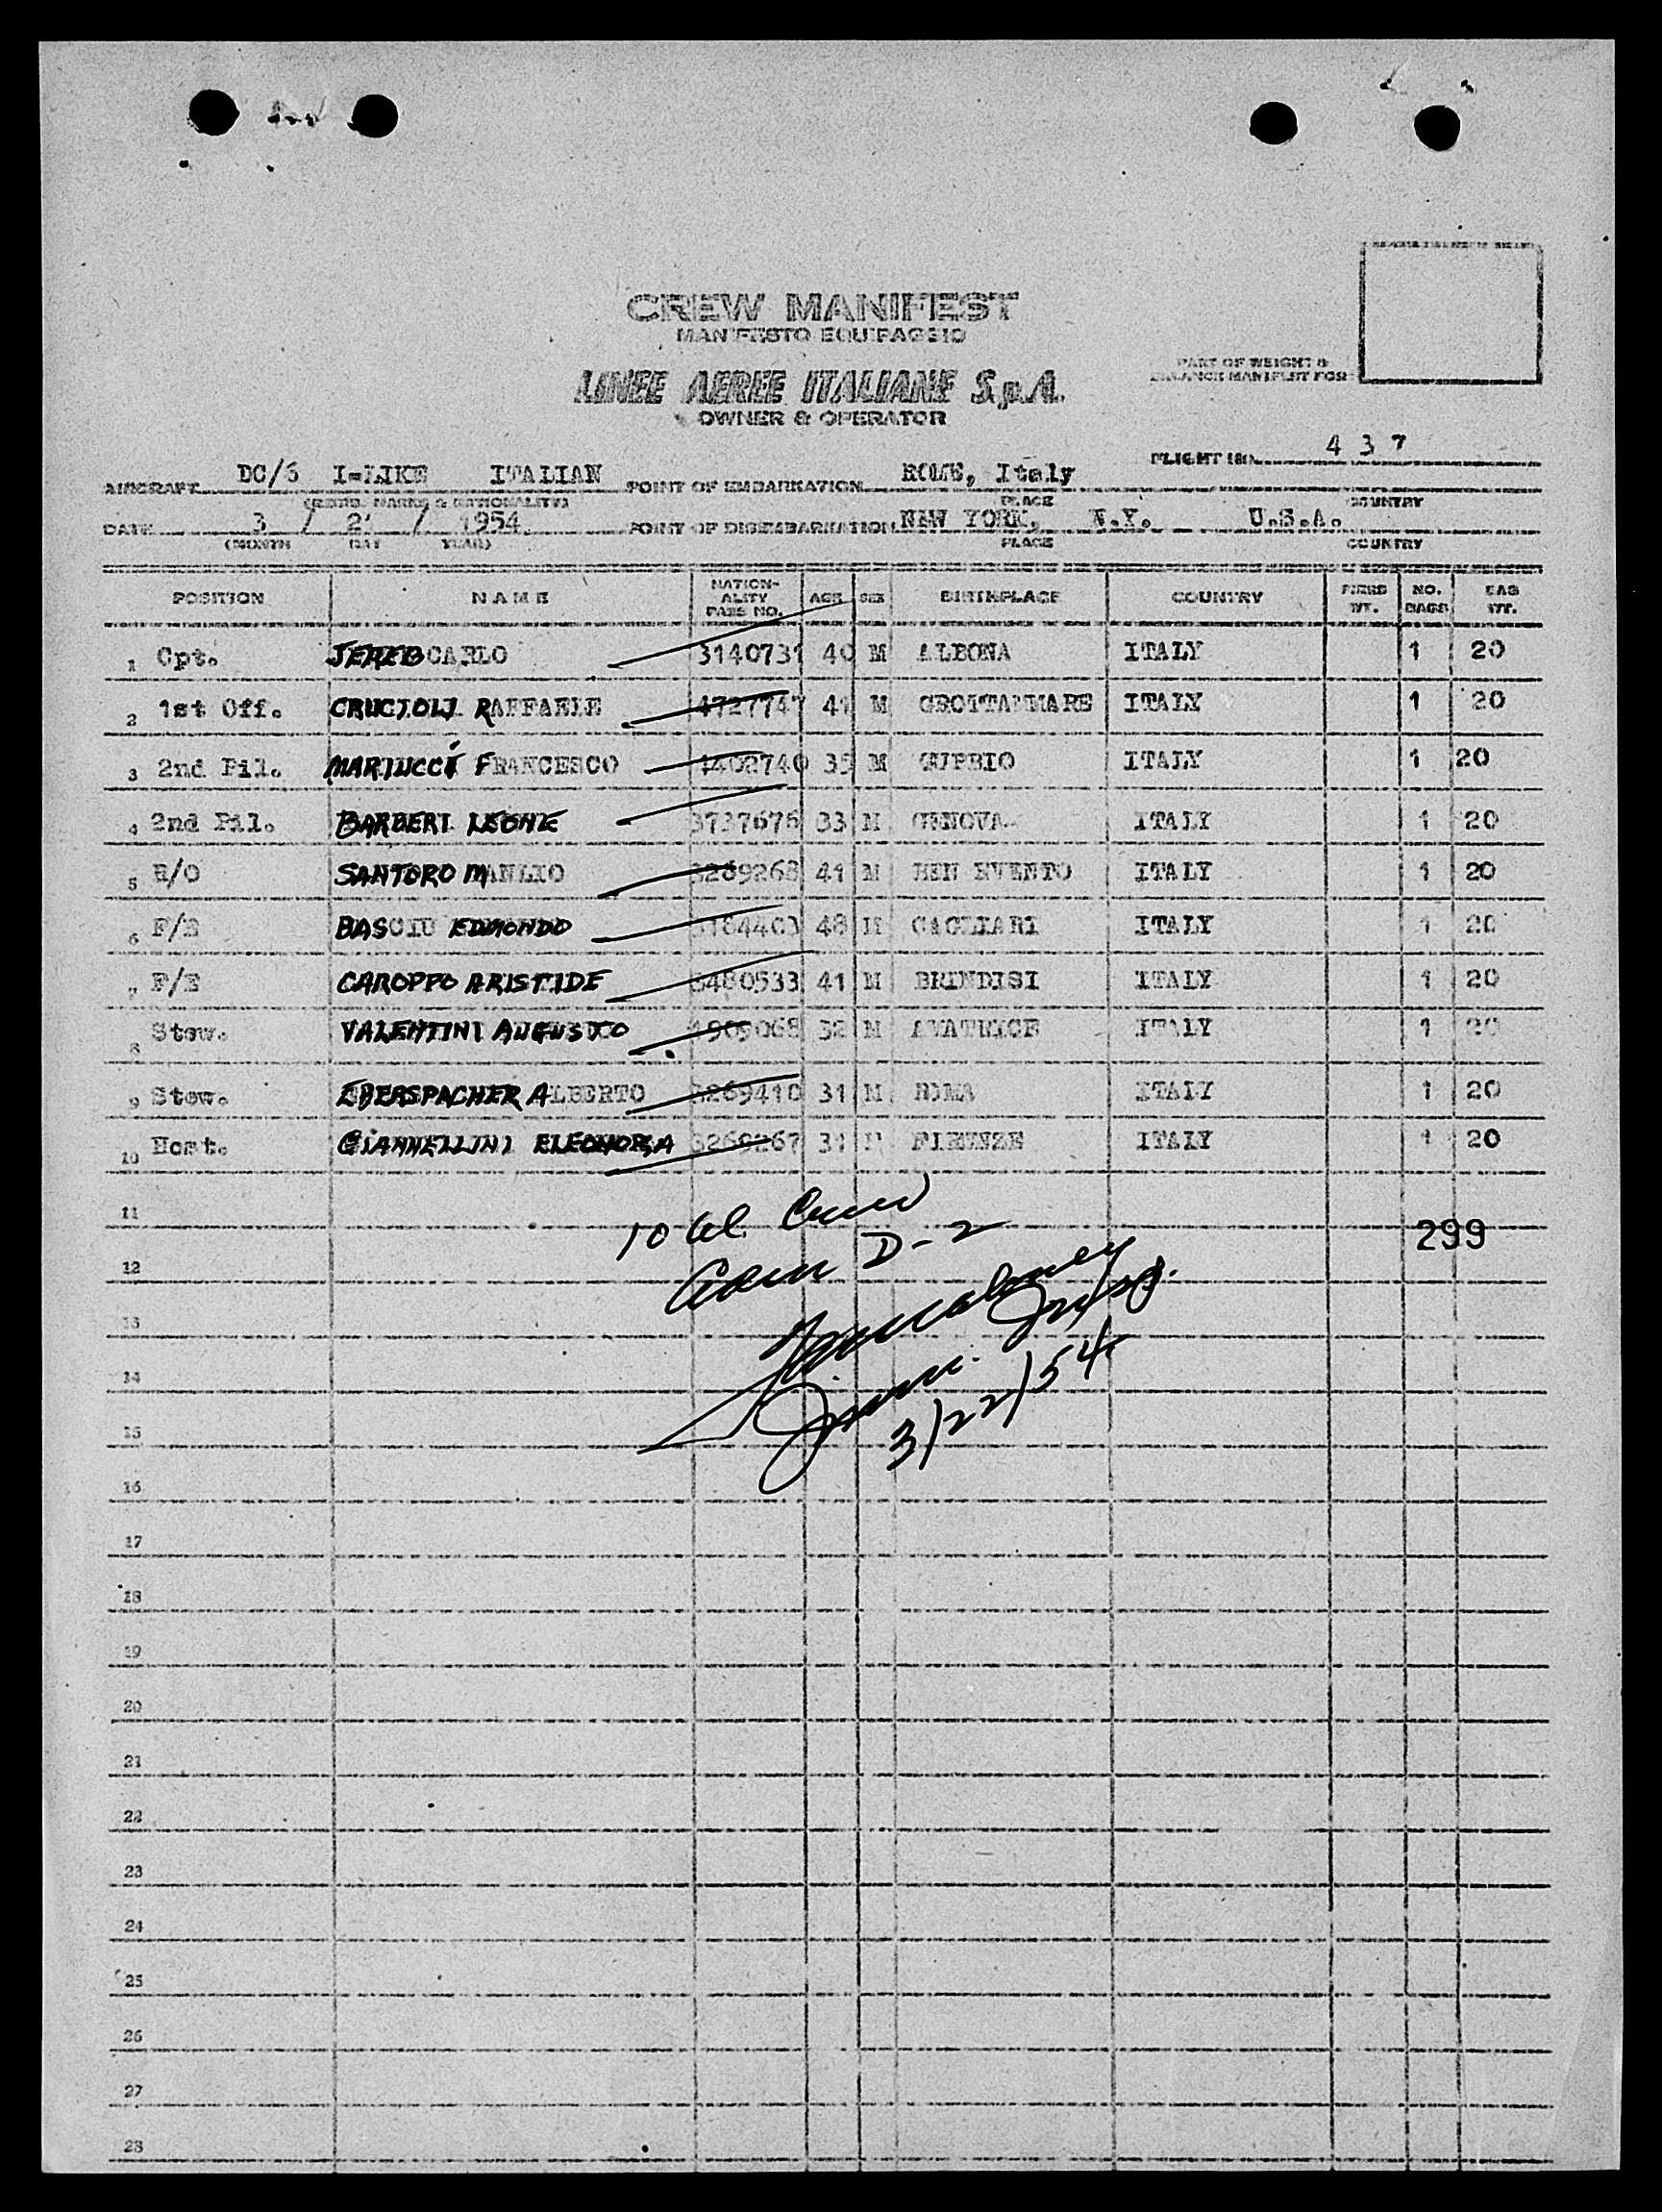 CREW MANIFEST
MANIFESTO EQUIPAGGIO
LINEE AEREE ITALIANE S.p.A.
OWNER & OPERATOR
PART OF WEIGHT &
BALANCE MANIFEST FOR
FLIGHT No. 4 3 7
AIRCRAFT DC/6 I-LIKE ITALIAN POINT OF EMBARKATION ROME, Italy
(REGIS. MARKS & NATIONALITY) PLACE COUNTRY
DATE 3 / 2 / 1954 POINT OF DISEMBARKATION NEW YORK, N.Y. U.S.A.
(MONTH DAY YEAR) PLACE COUNTRY
POSITION NAME NATION-ALITY PASS NO. AGE SEX BIRTHPLACE COUNTRY WT. NO. BAGS BAG WT.
1 Cpt. JEREB CARLO 3140731 40 M ALBONA ITALY 1 20
2 1st Off. CRUCIOLI RAFFAELE 4727747 41 M GROTTAMMARE ITALY 1 20
3 2nd Pil. MARIUCCI FRANCESCO 1402740 35 M GUBBIO ITALY 1 20
4 2nd Pil. BARBERI LEONE 3737676 33 M GENOVA ITALY 1 20
5 R/O SANTORO MANLIO 3269268 41 M BEN EVENTO ITALY 1 20
6 F/E BASCIU EDMONDO 48 M CAGLIARI ITALY 1 20
7 F/E CAROPPO ARISTIDE 3480533 41 M BRINDISI ITALY 1 20
8 Stew. VALENTINI AUGUSTO 1909068 32 M AMATRICE ITALY 1 20
9 Stew. EBERSPACHER ALBERTO 3269410 31 M ROMA ITALY 1 20
10 Host. GIANNELLINI ELEONORA 3269267 31 FIRENZE ITALY 1 20
11
10 Crew
299
12
D-2
13
14
3/22/54
15
16
17
18
19
20
21
22
23
24
25
26
27
28